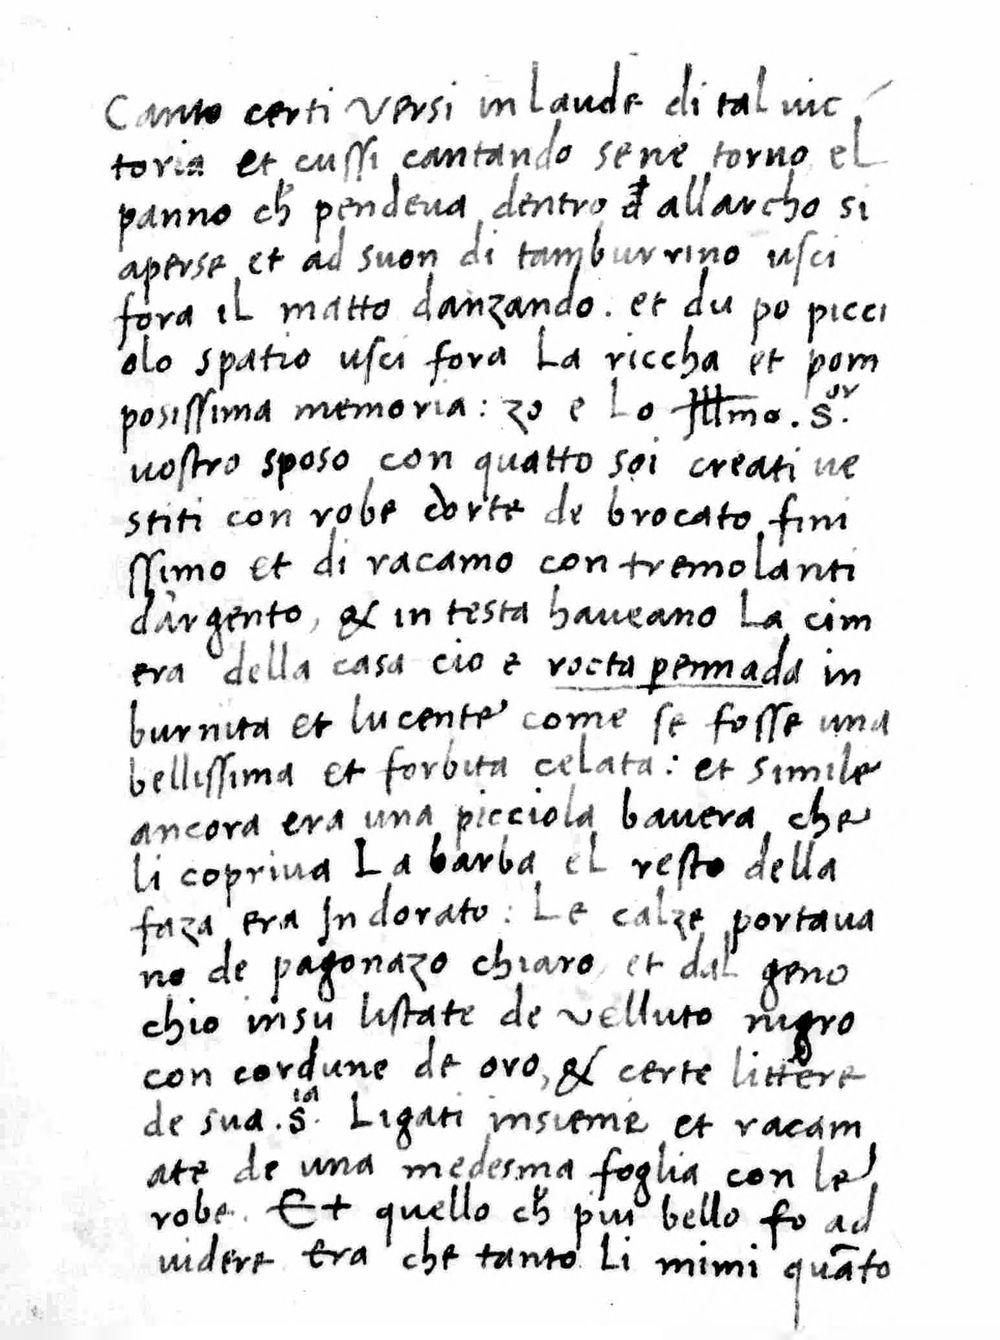 Canto certi versi in laude di tal vic
toria et cussi cantando sene torno el
panno ch pendeva dentro allarcho si
aperse et ad suon di tamburrino usci
fora il matto danzando. et du po picci
olo spatio usci fora La riccha et pom
posissima memoria: zo e Lo Illmo. Sor.
vostro sposo con quatto soi creati ve
stiti con robe corte de brocato fini
ssimo et di racamo con tremolanti
dàrgento, & in testa haveano La cim
era della casa cio e rocta pennada in
burnita et lucente come se fosse una
bellissima et forbita celata: et simile
ancora era una picciola bavera che
li copriva La barba el resto della
faza era Indorato: Le calze portava
no de pagonazo chiaro et dal geno
chio insu listate de velluto nigro
con cordune de oro, & certe littere
de sua. Sia. Ligati insieme et racam
ate de una medesma foglia con le
robe. Et quello ch piu bello fo ad
videre era che tanto Li mimi quāto